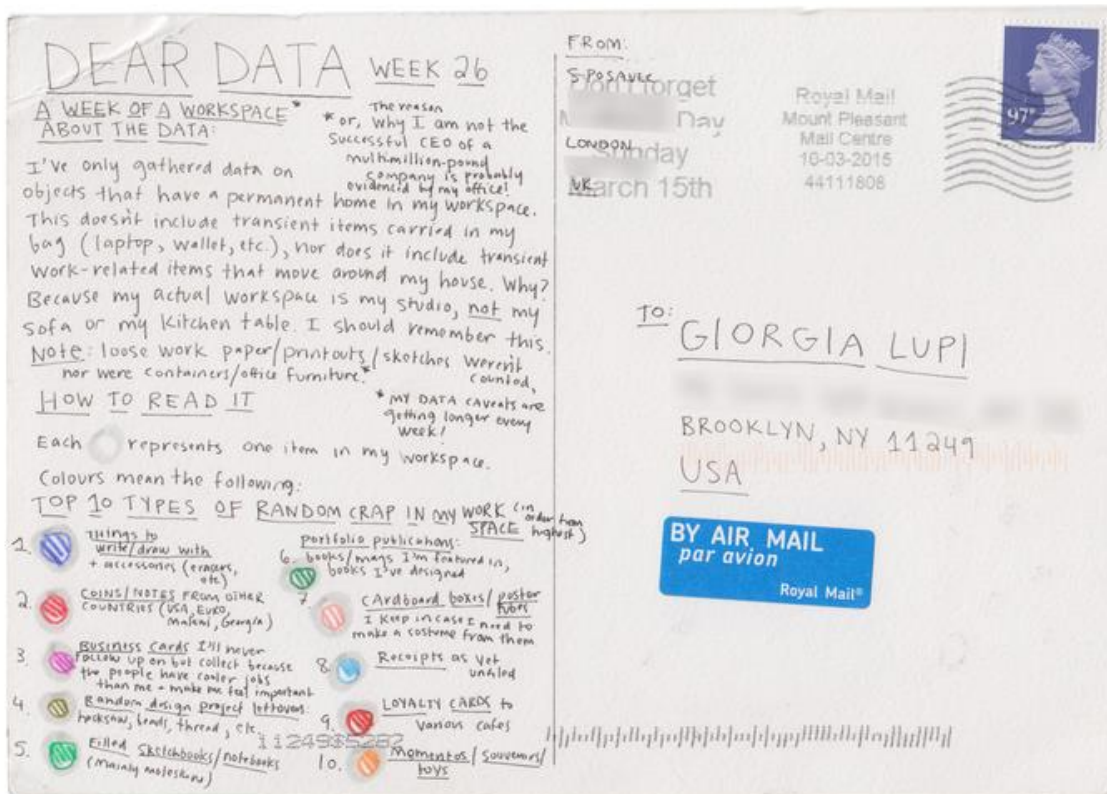 DEAR DATA WEEK 26
A WEEK OF A WORKSPACE*
* or, The reason Why I am not the
Successful CEO of a
multimillion-pound
company is probably
evidenced by my office!
ABOUT THE DATA:
I've only gathered data on
objects that have a permanent home in my workspace.
This doesn't include transient items carried in my
bag (laptop, wallet, etc.), nor does it include transient
work-related items that move around my house. Why?
Because my actual workspace is my studio, not my
sofa or my kitchen table. I should remember this.
Note: loose work paper/printouts/sketches weren't
counted,
nor were containers/office furniture.*
* MY DATA caveats are
getting longer every
week!
HOW TO READ IT
Each represents one item in my workspace.
Colours mean the following:
TOP 10 TYPES OF RANDOM CRAP IN MY WORK
SPACE (in order from highest)
1. Things to
write/draw with
+ accessories (erasers,
etc)
2. COINS/NOTES FROM OTHER
COUNTRIES (USA, EURO,
Malawi, Georgia)
3. Business Cards I'll never
follow up on but collect because
the people have cooler jobs
than me + make me feel important
4. Random design project leftovers:
hacksaw, beads, thread, etc.
5. Filled Sketchbooks/notebooks
(Mainly moleskine)
portfolio publications:
6. books/mags I'm featured in,
books I've designed
7. cardboard boxes/poster
tubes
I keep in case I need to
make a costume from them
8. Receipts as yet
unfiled
9. LOYALTY CARDS to
various cafes
10. Momentos/Souvenirs/
toys
11249$5287
FROM:
S. POSAVEC
LONDON
UK
Don't forget
Day
Sunday
March 15th
Royal Mail
Mount Pleasant
Mail Centre
10-03-2015
44111808
97P
TO:
GIORGIA LUPI
BROOKLYN, NY 11249
USA
BY AIR MAIL
par avion
Royal Mail®